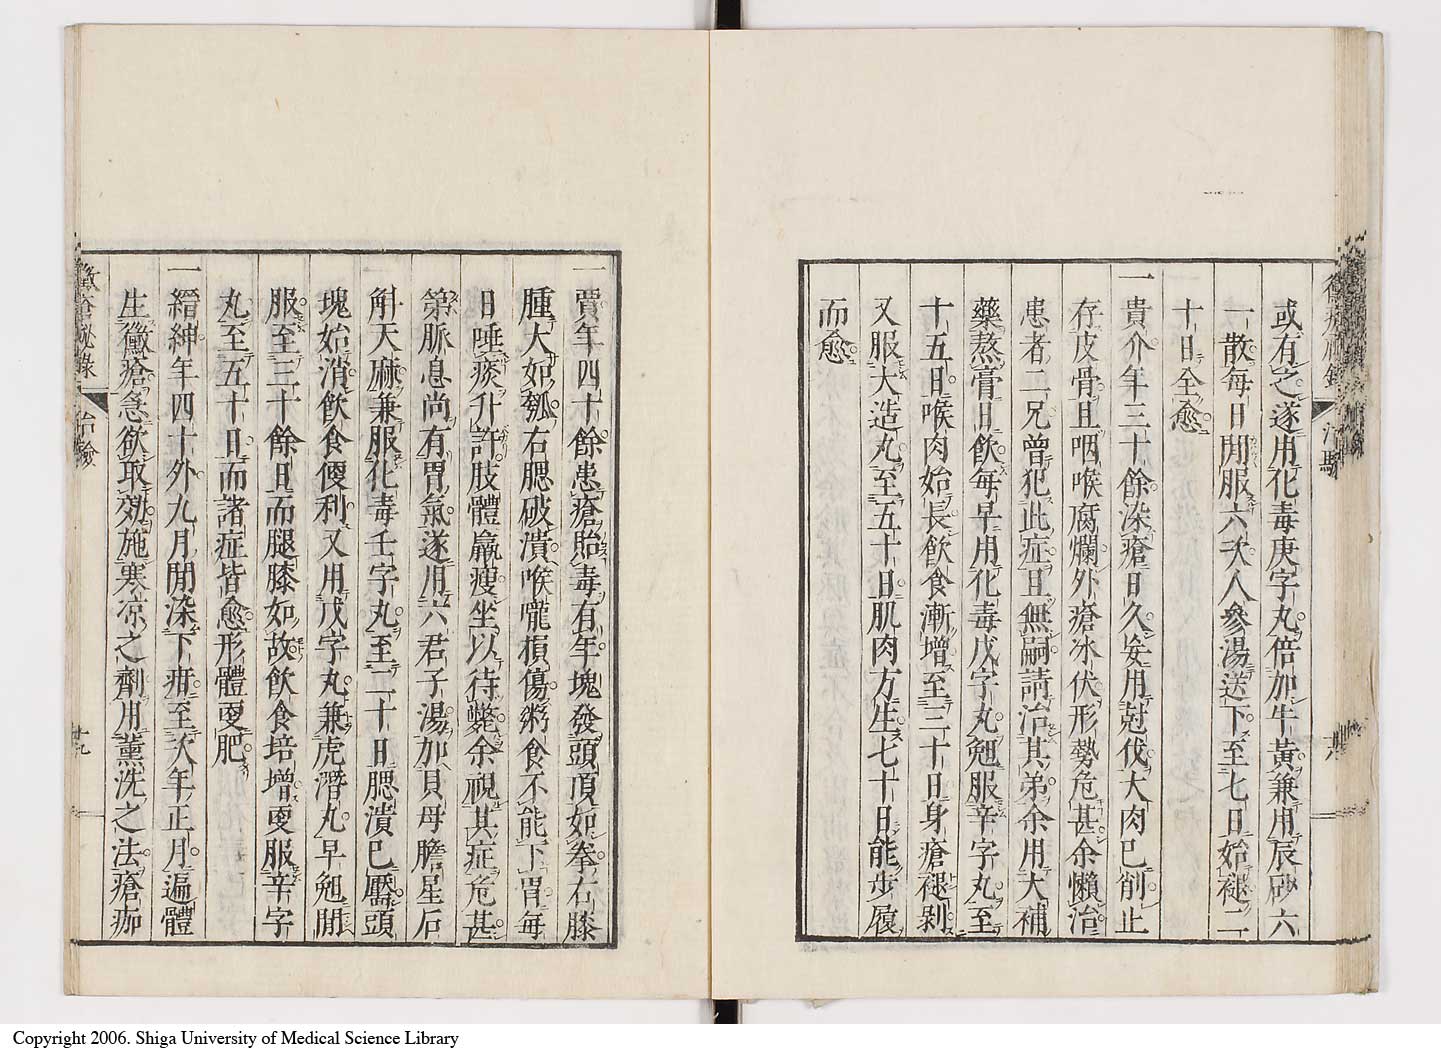 或有之遂用化毒庚字丸倍加牛黃兼用辰砂六
一散每日間服六次人參湯送下至七日始褪二
十日全愈
一貴介年三十餘染瘡日久妄用尅伐大肉已削止
存皮骨且咽喉腐爛外瘡冰伏形勢危甚余懶治
患者二兄曾犯此症且無嗣請治其弟余用大補
藥熬膏日飲每早用化毒戊字丸㿝服辛字丸至
十五日喉肉始長飲食漸增至三十日身瘡褪剝
又服大造丸至五十日肌肉方生七十日能步履
而愈
一賈年四十餘患瘡貽毒有年塊發頭頂如拳右膝
腫大如瓠右腮破潰喉嚨損傷粥食不能下胃每
日唾痰升許肢體羸瘦坐以待斃余視其症危甚
第脈息尚有胃氣遂用六君子湯加貝母膽星石
斛天麻兼服化毒壬字丸至二十日腮潰已靨頭
塊始消飲食便利又用戊字丸兼虎潛丸早㿝間
服至三十餘日而腿膝如故飲食培增更服辛字
丸至五十日而諸症皆愈形體更肥
一縉紳年四十外九月間染下疳至次年正月遍體
生黴瘡急欲取効施寒凉之劑用薰洗之法瘡痂
黴瘡秘錄 治驗 廿九
Copyright 2006. Shiga University of Medical Science Library